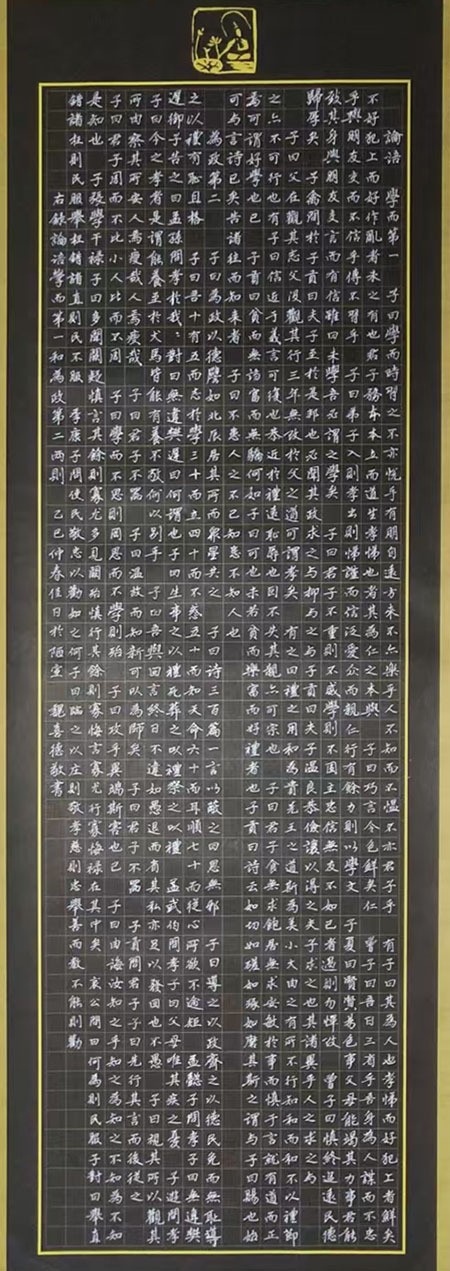 論語 學而第一 子曰學而時習之不亦悅乎有朋自遠方來不亦樂乎人不知而不慍不亦君子乎 有子曰其為人也孝悌而好犯上者鮮矣
不好犯上而好作亂者未之有也君子務本本立而道生孝悌也者其為仁之本與 子曰巧言令色鮮矣仁 曾子曰吾日三省乎吾身為人謀而不忠
乎與朋友交而不信乎傳不習乎 子曰弟子入則孝出則悌謹而信泛愛眾而親仁行有餘力則以學文 子夏曰賢賢易色事父母能竭其力事君能
致其身與朋友交言而有信雖曰未學吾必謂之學矣 子曰君子不重則不威學則不固主忠信無友不如己者過則勿憚改 曾子曰慎終追遠民德
歸厚矣 子禽問於子貢曰夫子至於是邦也必聞其政求之與抑與之與子貢曰夫子溫良恭儉讓以得之夫子求之也其諸異乎人之求之與
子曰父在觀其志父沒觀其行三年無改於父之道可謂孝矣 有子曰禮之用和為貴先王之道斯為美小大由之有所不行知和而和不以禮節
之亦不可行也有子曰信近于義言可復也恭近於禮遠恥辱也因不失其親亦可宗也 子曰君子食無求飽居無求安敏於事而慎于言就有道而正
焉可謂好學也已 子貢曰貧而無諂富而無驕何如子曰可也未若貧而樂富而好禮者也子貢曰詩云如切如磋如琢如磨其斯之謂與子曰賜也始
可與言詩已矣告諸往而知來者 子曰不患人之不己知患不知人也
為政第二 子曰為政以德譬如北辰居其所而眾星共之 子曰詩三百篇一言以蔽之曰思無邪 子曰導之以政齊之以德民免而無恥導
之以禮有恥且格 子曰吾十有五而志於學三十而立四十而不惑五十而知天命六十而耳順七十而從心所欲不逾矩 孟懿子問孝子曰無違樊
遲御子告之曰孟孫問孝於我我對曰無違樊遲曰何謂也子曰生事之以禮死葬之以禮祭之以禮 孟武伯問孝子曰父母唯其疾之憂 子遊問孝
子曰今之孝者是謂能養至於犬馬皆能有養不敬何以別乎 子曰吾與回言終日不違如愚退而省其私亦足以發回也不愚 子曰視其所以觀其
所由察其所安人焉廋哉人焉廋哉 子曰溫故而知新可以為師矣 子曰君子不器 子貢問君子子曰先行其言而後從之
子曰君子周而不比小人比而不周 子曰學而不思則罔思而不學則殆 子曰攻乎異端斯害也已 子曰由誨汝知之乎知之為知之不知為不知
是知也 子張學干祿子曰多聞闕疑慎言其餘則寡尤多見闕殆慎行其餘則寡悔言寡尤行寡悔祿在其中矣 哀公問曰何為則民服子對曰舉直
錯諸枉則民服舉枉錯諸直則民不服 季康子問使民敬忠以勸如之何子曰臨之以庄則敬孝慈則忠舉善而教不能則勸
右錄論語學而第一和為政第二兩則 己巳仲春佳日於陋室 魏喜德敬書